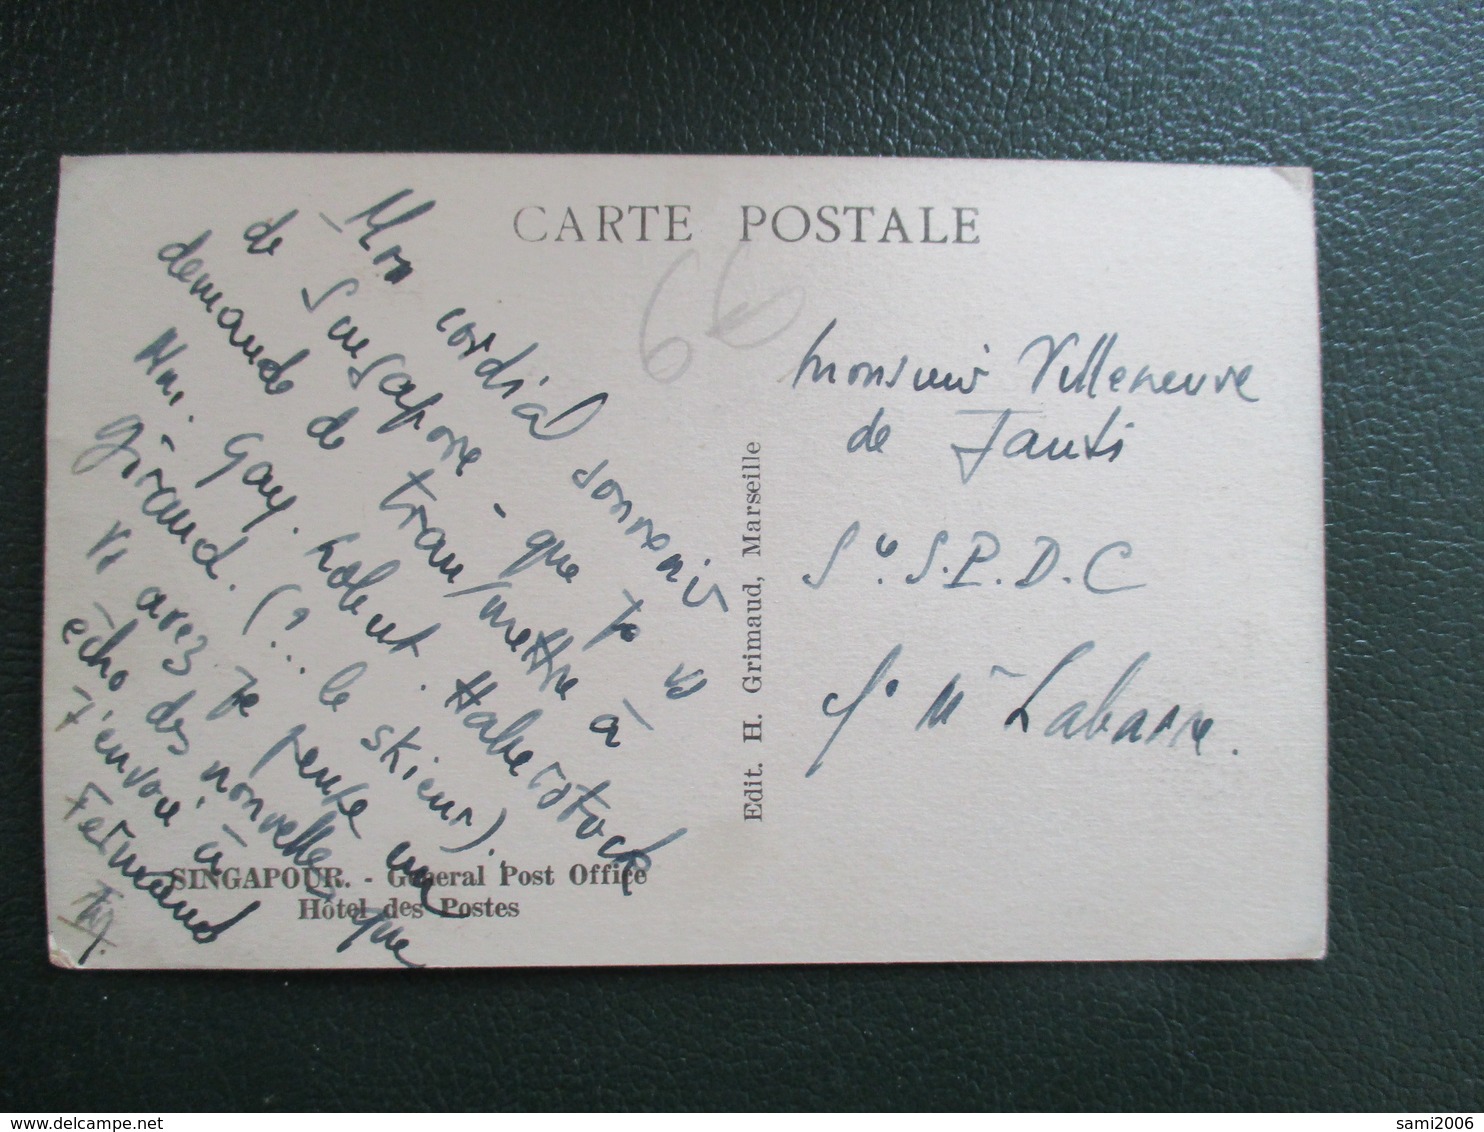 CARTE POSTALE
66
Mon cordial souvenir
de Singapore - que je vs
demande de transmettre à
MM. Gay. Haberstock
Giraud. (?... le skieur).
Vs avez je pense eu
écho des nouvelles que
j'envoie à
Fernand
Monsieur Villeneuve
de Janti
Sté. S.P.D.C
Labarre.
Edit. H. Grimaud, Marseille
SINGAPOUR. - General Post Office
Hôtel des Postes
sami2006